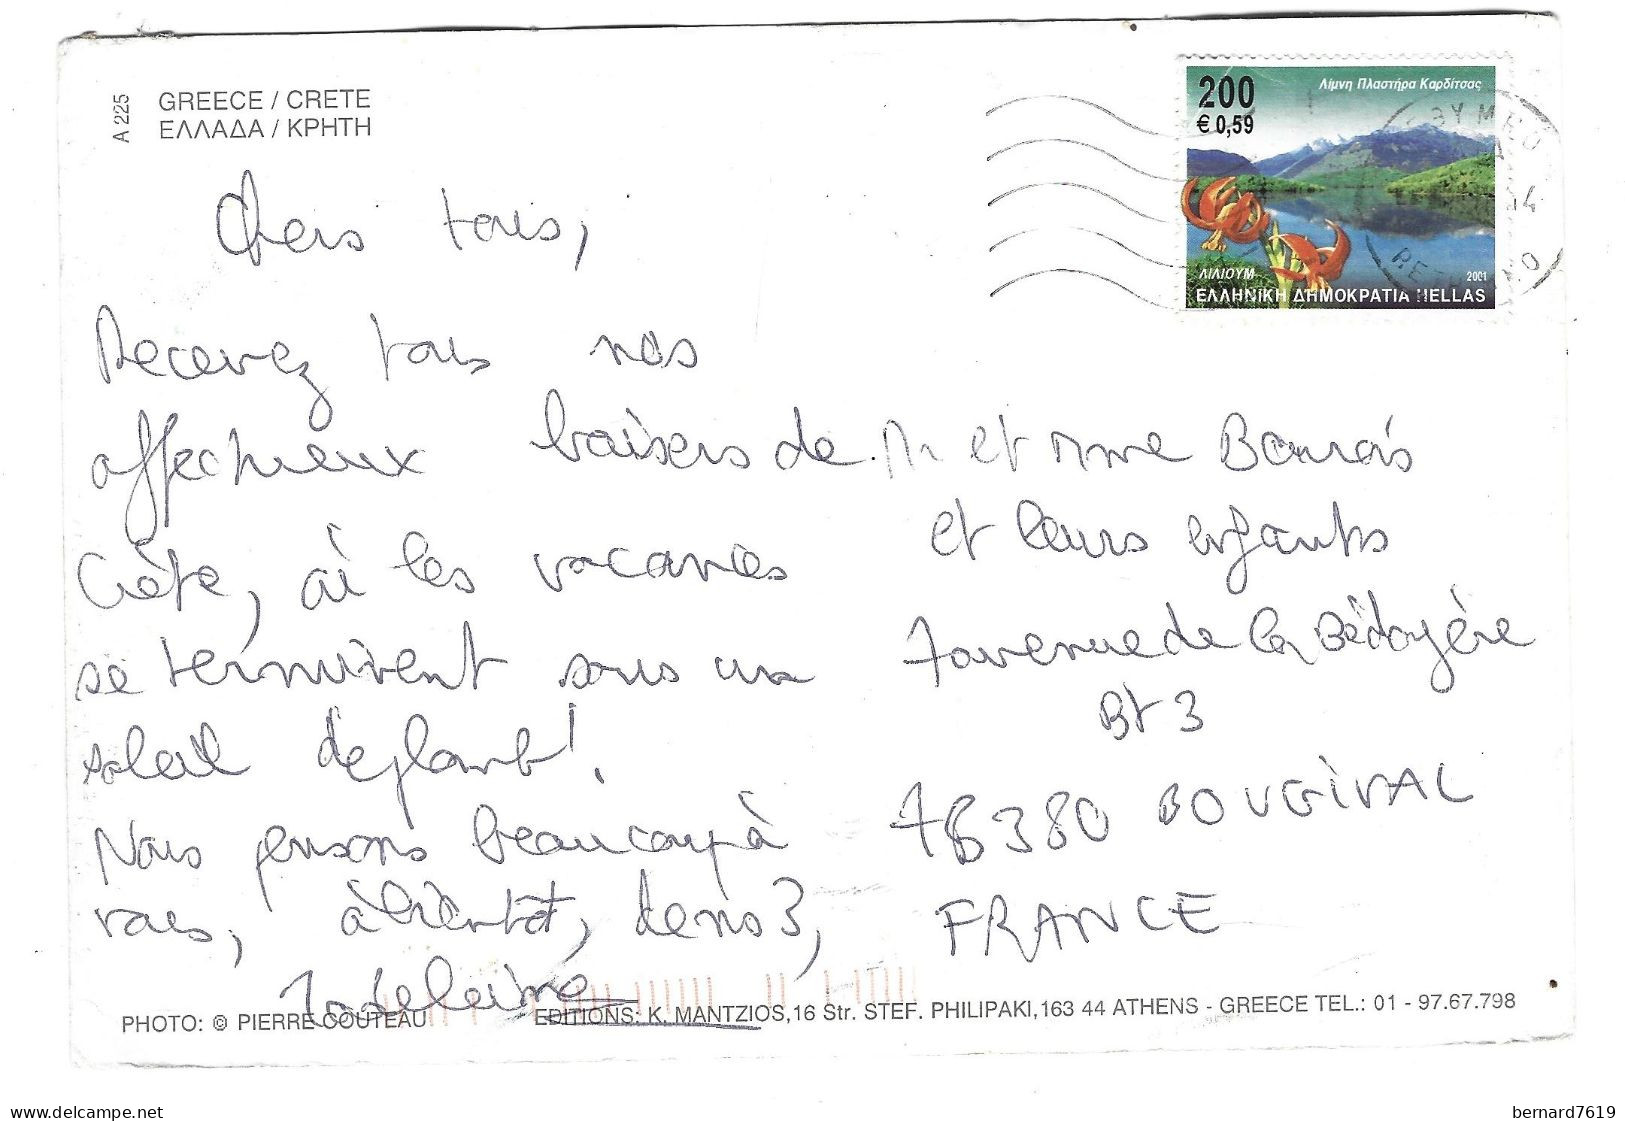 A 225
GREECE / CRETE
ΕΛΛΑΔΑ / ΚΡΗΤΗ
200
€ 0,59
Λίμνη Πλαστήρα Καρδίτσας
ΛΙΛΙΟΥΜ
2001
ΕΛΛΗΝΙΚΗ ΔΗΜΟΚΡΑΤΙΑ HELLAS
Chers tous,
Recevez tous nos
affectueux baisers de
Crète, où les vacances
se terminent sous un
soleil
Nous pensons beaucoup à
vous, à bientôt,
Madeleine
Mr et Mme
et leurs enfants
7 avenue de la Bédoyère
Bt 3
78380 BOUGIVAL
FRANCE
PHOTO: © PIERRE COUTEAU
EDITIONS: K. MANTZIOS,16 Str. STEF. PHILIPAKI,163 44 ATHENS - GREECE TEL.: 01 - 97.67.798
www.delcampe.net
bernard7619